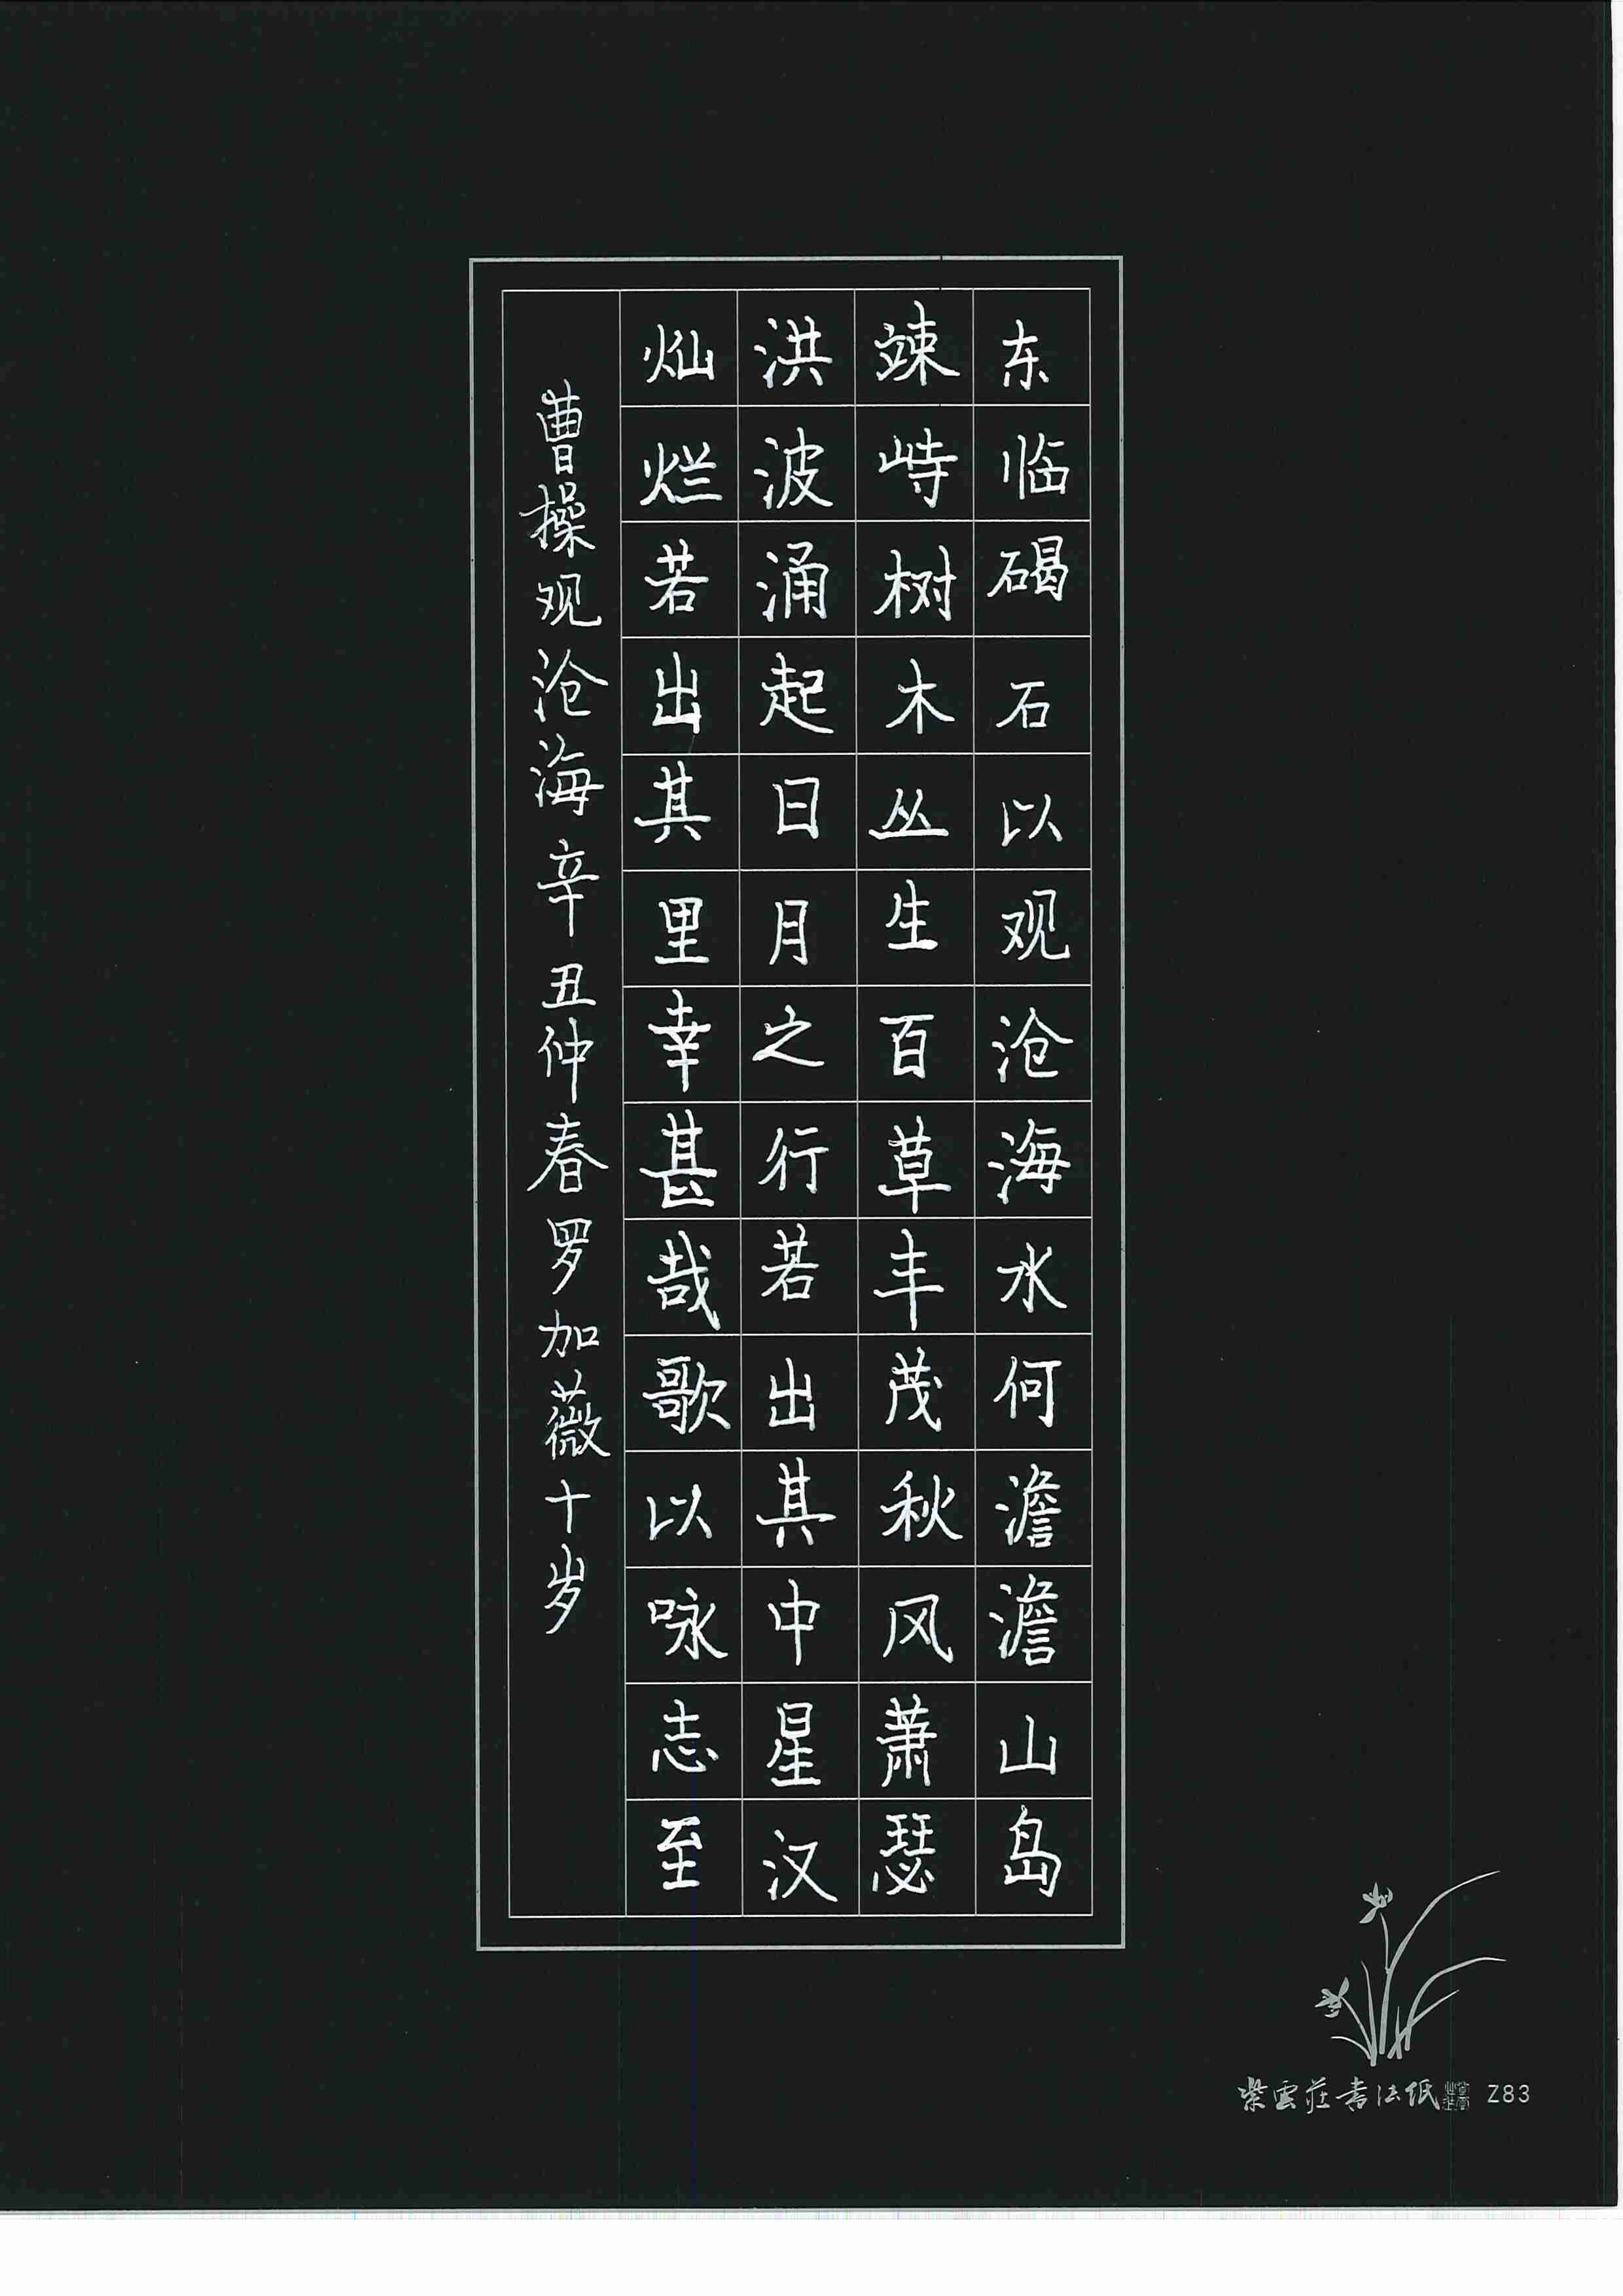 东临碣石以观沧海水何澹澹山岛
竦峙树木丛生百草丰茂秋风萧瑟
洪波涌起日月之行若出其中星汉
灿烂若出其里幸甚哉歌以咏志至
曹操观沧海辛丑仲春罗加薇十岁
紫雲莊书法纸 Z83